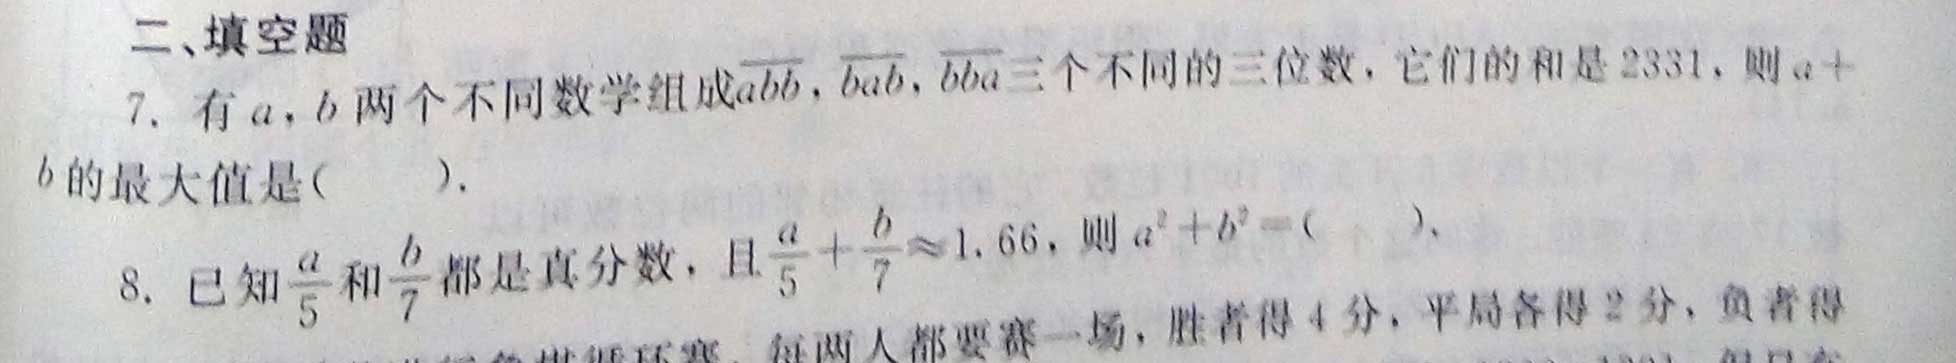 二、填空题
7. 有 a,b 两个不同数学组成abb,bab,bba三个不同的三位数,它们的和是 2331,则 a+
b 的最大值是(    ).
8. 已知a/5和b/7都是真分数,且a/5+b/7≈1.66,则 a²+b²=(    ).
循环赛,每两人都要赛一场,胜者得 4 分,平局各得 2 分,负者得